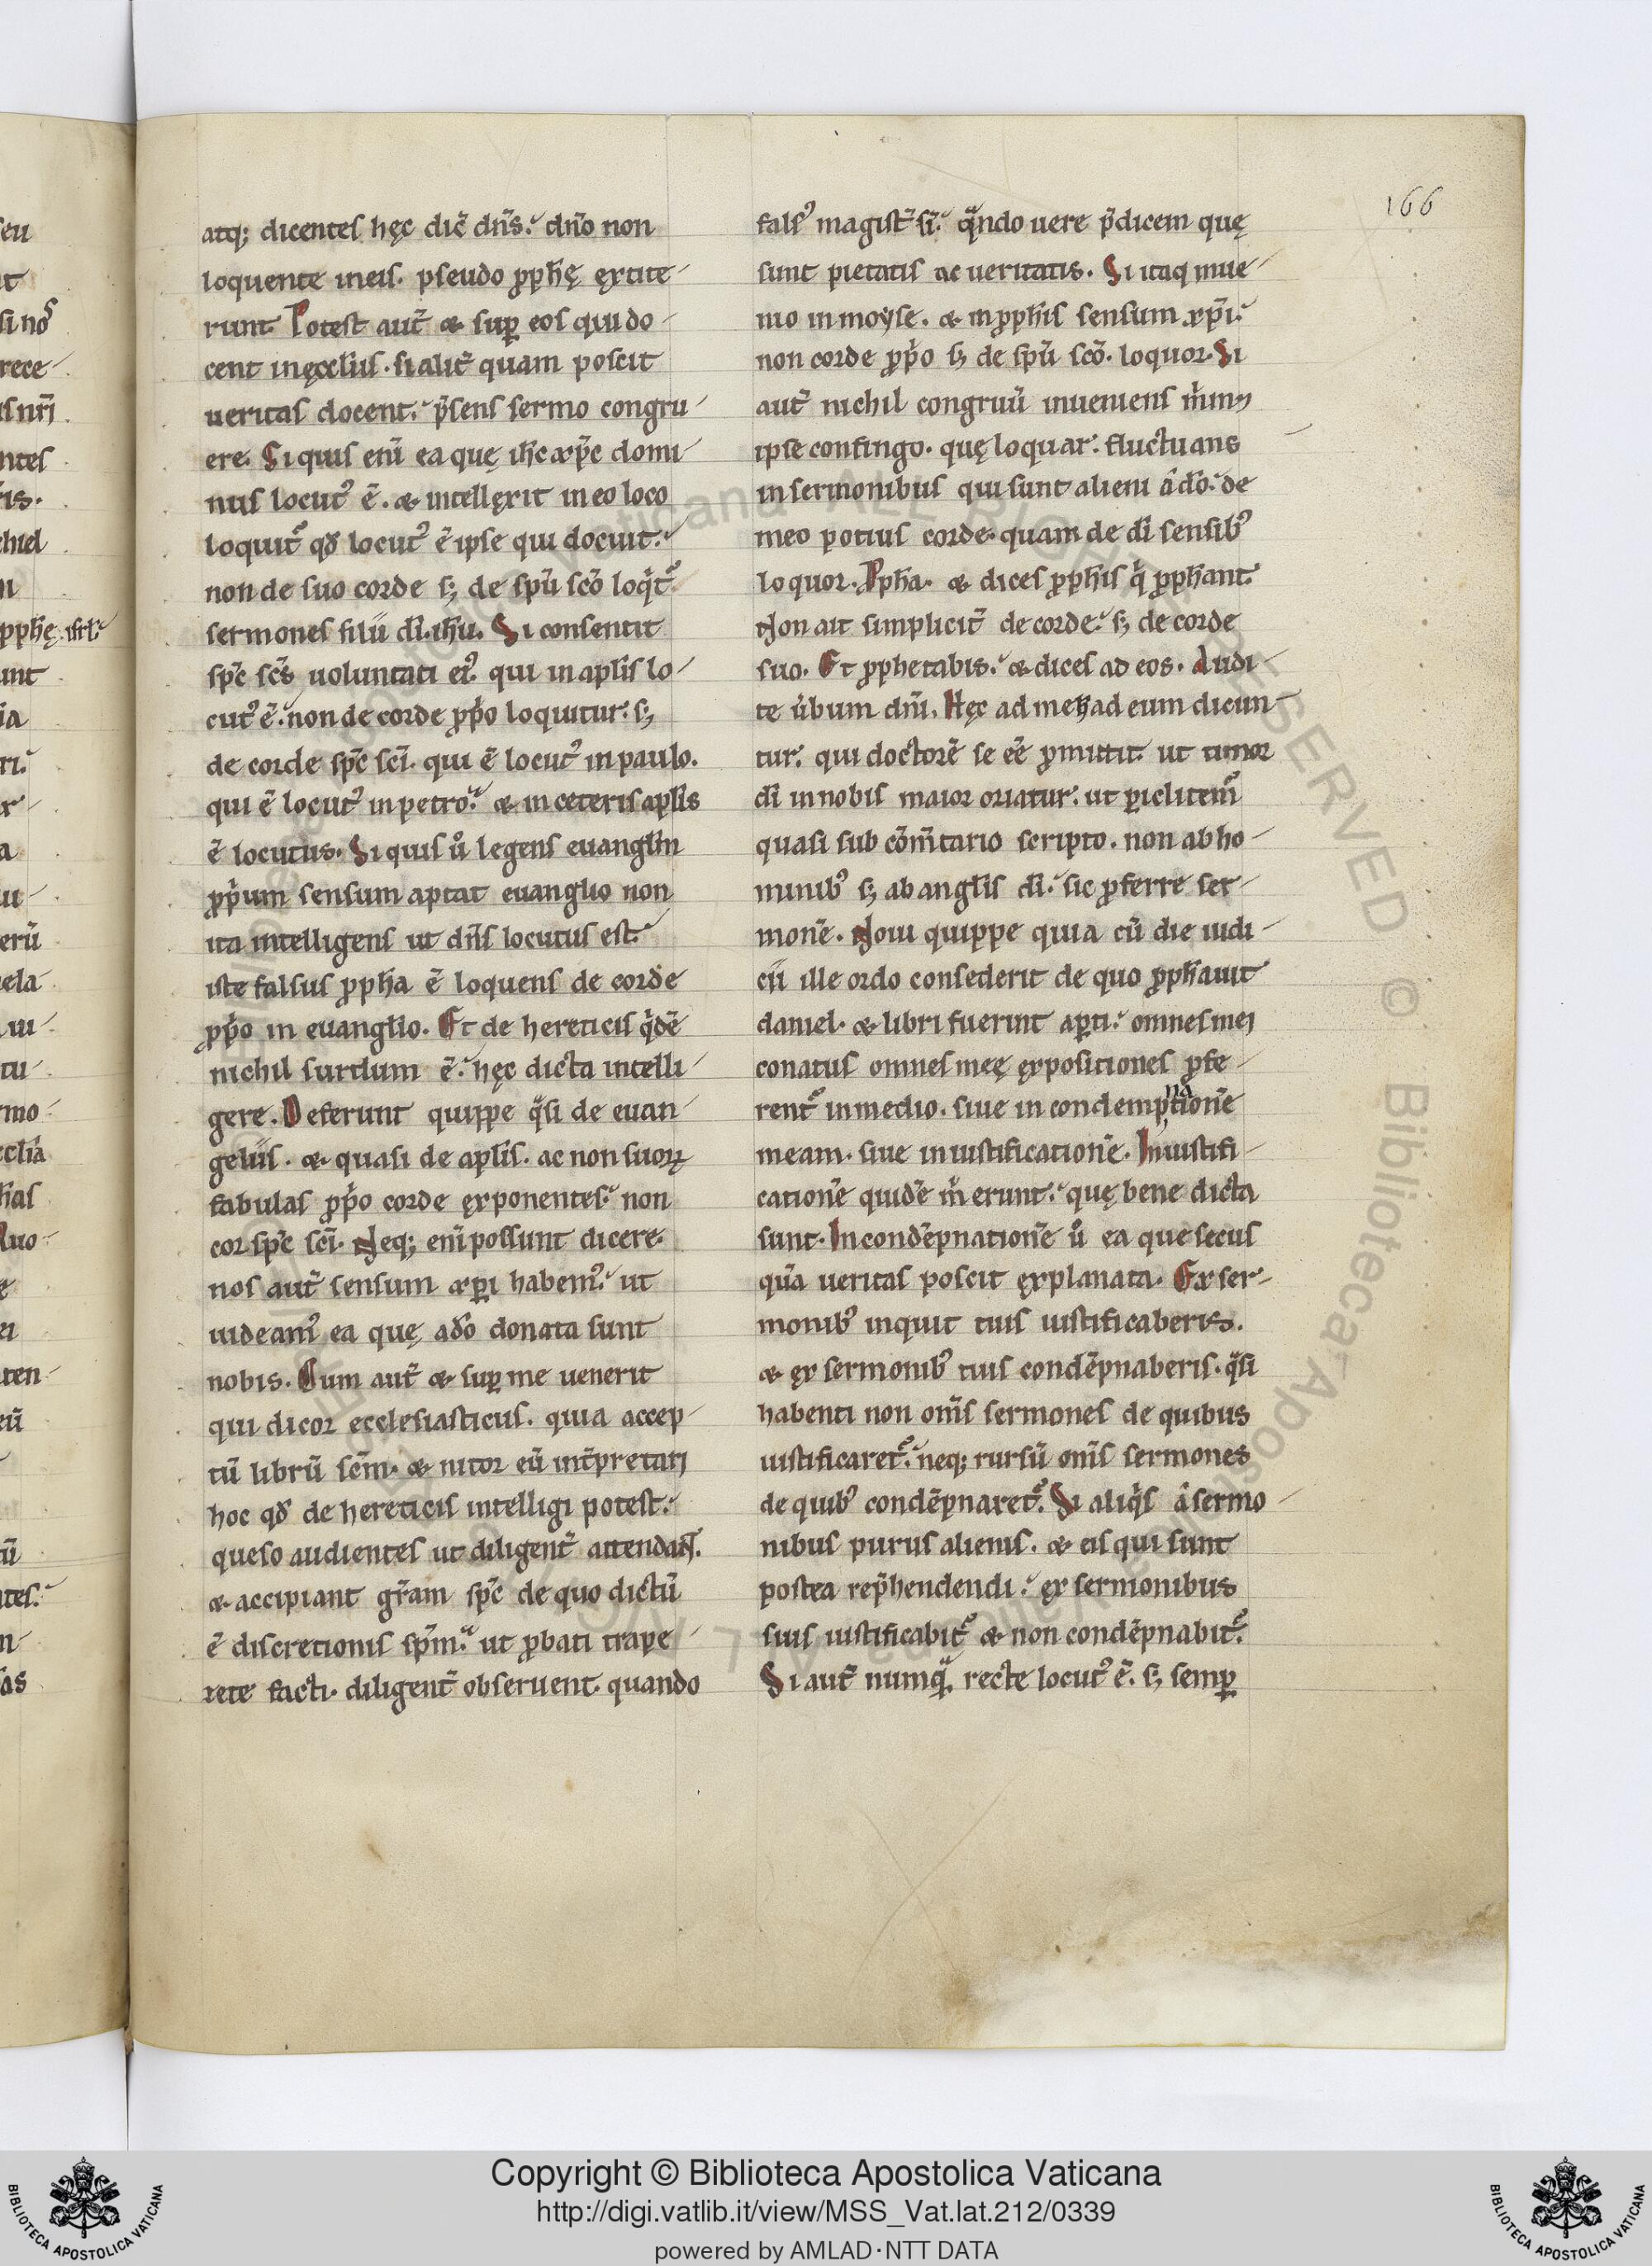 166
atq; dicentes hęc dic̄ dn̄s. dn̄o non
loquente in eis. pseudo ꝓph̄ę ęxtite-
runt. Potest aut̄ & suꝑ eos qui do-
cent in ęccl̄iis. si alit̄ quam poscit
ueritas docent. p̄sens sermo congru-
ere. Si quis eni̅ ea quę ih̄c xp̄c domi-
nus locutꝰ ē. & intellęxit in eo loco
loquit᷑ qđ locutꝰ ē ipse qui docuit.
non de suo corde s; de sp̄u sc̄o loqͥt᷑
sermones filii dī ih̄u. Si consentit
sp̄c sc̄s uoluntati eiꝰ. qui in apl̄is lo-
cutꝰ ē. non de corde ꝓpͥo loquitur. s;
de corde sp̄c sc̄i. qui ē locutꝰ in paulo.
qui ē locutꝰ in petro. & in ceteris apl̄is
ē locutus. Si quis uͦ legens euangl̄m
ꝓpͥum sensum aptat euangl̄io non
ita intelligens ut dn̄s locutus est.
iste falsus ꝓph̄a ē loquens de corde
ꝓpͥo in euangl̄io. Et de hereticis qͥdē
nichil surdum ē. hęc dicta intelli-
gere. Deferunt quippe qͣsi de euan-
geliis. & quasi de apl̄is. ac non suoꝝ
fabulas ꝓpͥo corde ęxponentes. non
cor sp̄c sc̄i. Neq; eni̅ possunt dicere.
nos aut̄ sensum xp̄i habemꝰ. ut
uideamꝰ ea quę a dō donata sunt
nobis. Cum aut̄ & suꝑ me uenerit
qui dicor ecclesiasticus. quia accep-
tū librū sc̄m. & nitor eū int̄pretari
hoc qđ de hereticis intelligi potest.
queso audientes ut diligent̄ attendant.
& accipiant gr̄am sp̄c de quo dictū
ē discretionis sp̄m. ut ꝓbati trape-
zete facti. diligent̄ obseruent. quando
falsꝰ magist̄ si̅. qͣndo uere p̄dicem quę
sunt pietatis ac ueritatis. Si itaq inue-
nio in moyse. & in ꝓph̄is sensum xp̄i.
non corde ꝓpͥo s; de sp̄u sc̄o. loquor. Si
aut̄ nichil congruū inueniens
ipse confingo. quę loquar. fluctuans
in sermonibus qui sunt alieni a dō. de
meo potius corde. quam de dī sensibꝰ
loquor. Ppħa. & dices ꝓph̄is qͥ ꝓph̄ant.
Non ait simplicit̄ de corde. s; de corde
suo. Et ꝓphetabis. & dices ad eos. Audi-
te ūbum dn̄i. Hęc ad me & ad eum dicun-
tur. qui doctorē se eē ꝓmittit. ut timor
dī in nobis maior oriatur. ut ꝑiclitem᷑
quasi sub cōm̄tario scripto. non ab ho-
minibꝰ s; ab angl̄is dī. sic ꝓferre ser-
monē. Noui quippe quia cū die iudi-
cii ille ordo consederit de quo ꝓph̄auit
daniel. & libri fuerint aꝑti. omnes mei
conatus omnes meę ęxpositiones ꝓfe-
rent᷑ in medio. siue in condempnationē
meam. siue in iustificationē. In iustifi-
cationē quidē m̄ erunt. quę bene dicta
sunt. In condēpnationē uͦ ea que secus
qͣ̄ ueritas poscit ęxplanata. Ex ser-
monibꝰ inquit tuis iustificaberis.
& ęx sermonibꝰ tuis condēpnaberis. qͣsi
habenti non om̄s sermones de quibus
iustificaret᷑. neq; rursū om̄s sermones
de quibꝰ condēpnaret᷑. Si aliqͥs a sermo-
nibus purus alienis. & eis qui sunt
postea rep̄hendendi. ęx sermonibus
suis iustificabit᷑ & non condēpnabit᷑.
Si aut̄ numqͣ recte locutꝰ ē. s; semꝑ
Copyright © Biblioteca Apostolica Vaticana
http://digi.vatlib.it/view/MSS_Vat.lat.212/0339
powered by AMLAD·NTT DATA